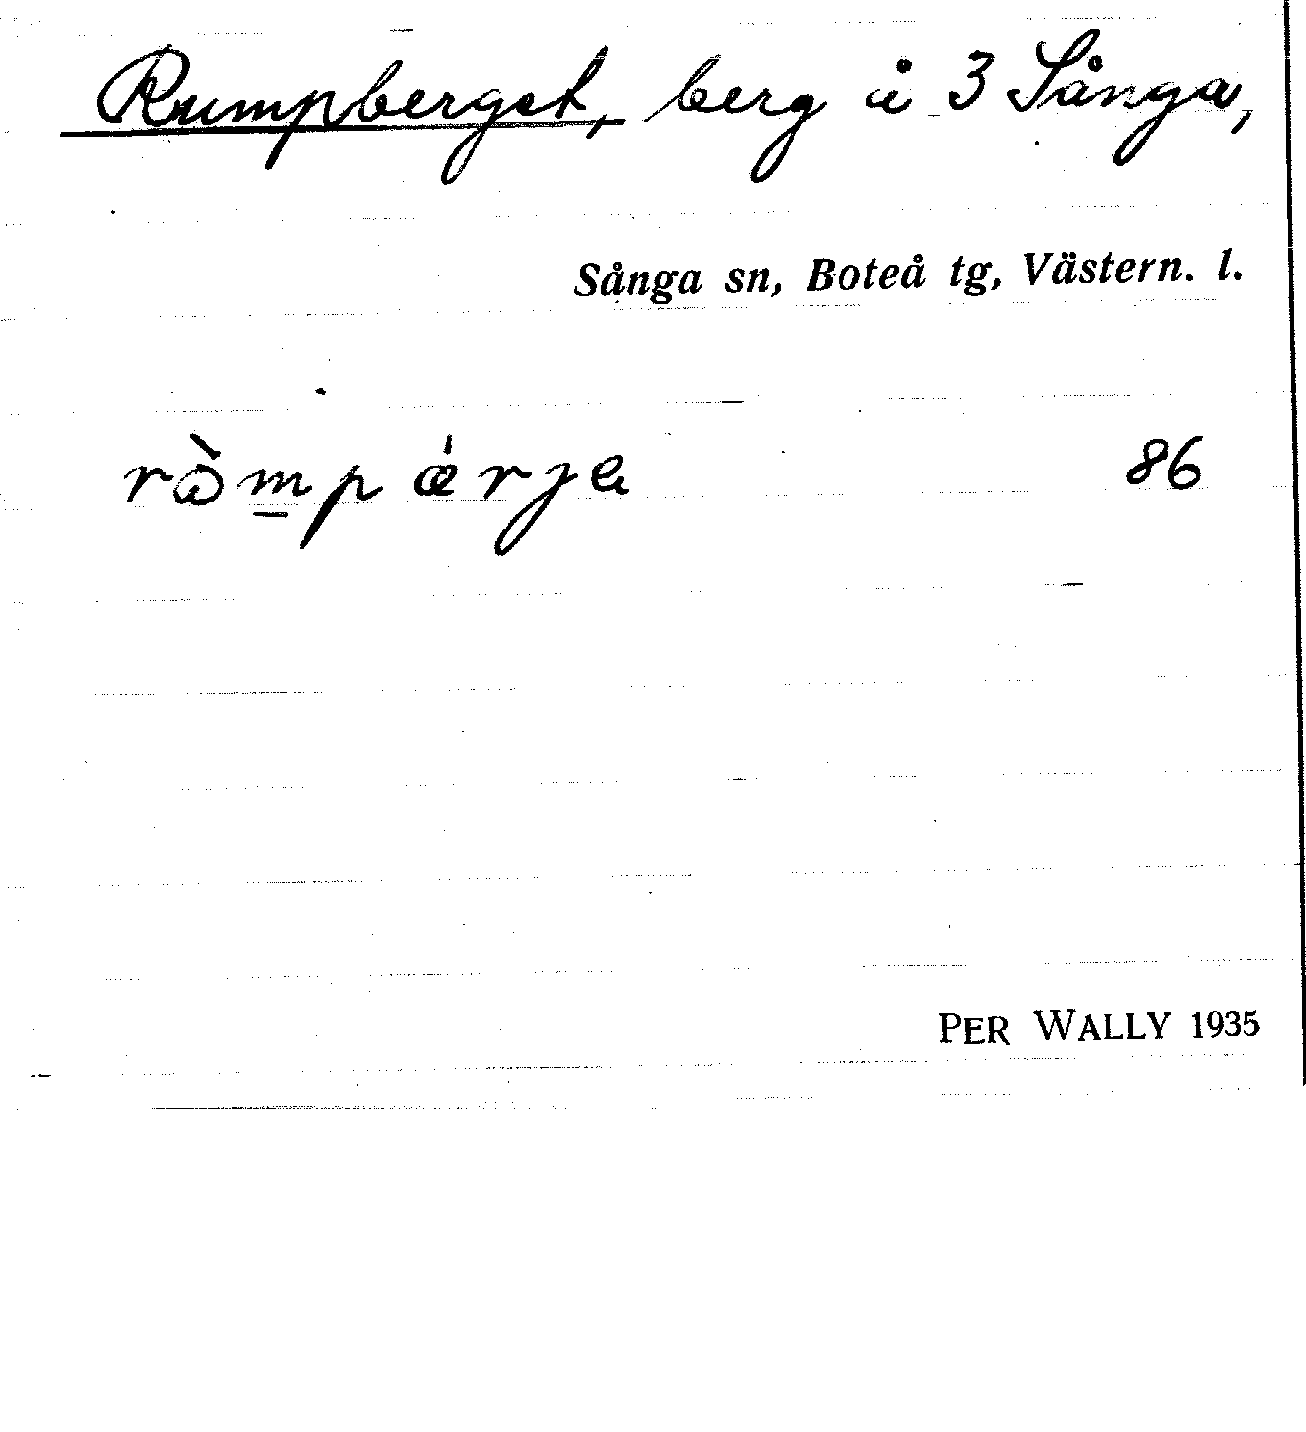 Rumpberget, berg å 3 Sånga,
Sånga sn, Boteå tg, Västern. l.
ròmpǽrje 86
PER WALLY 1935